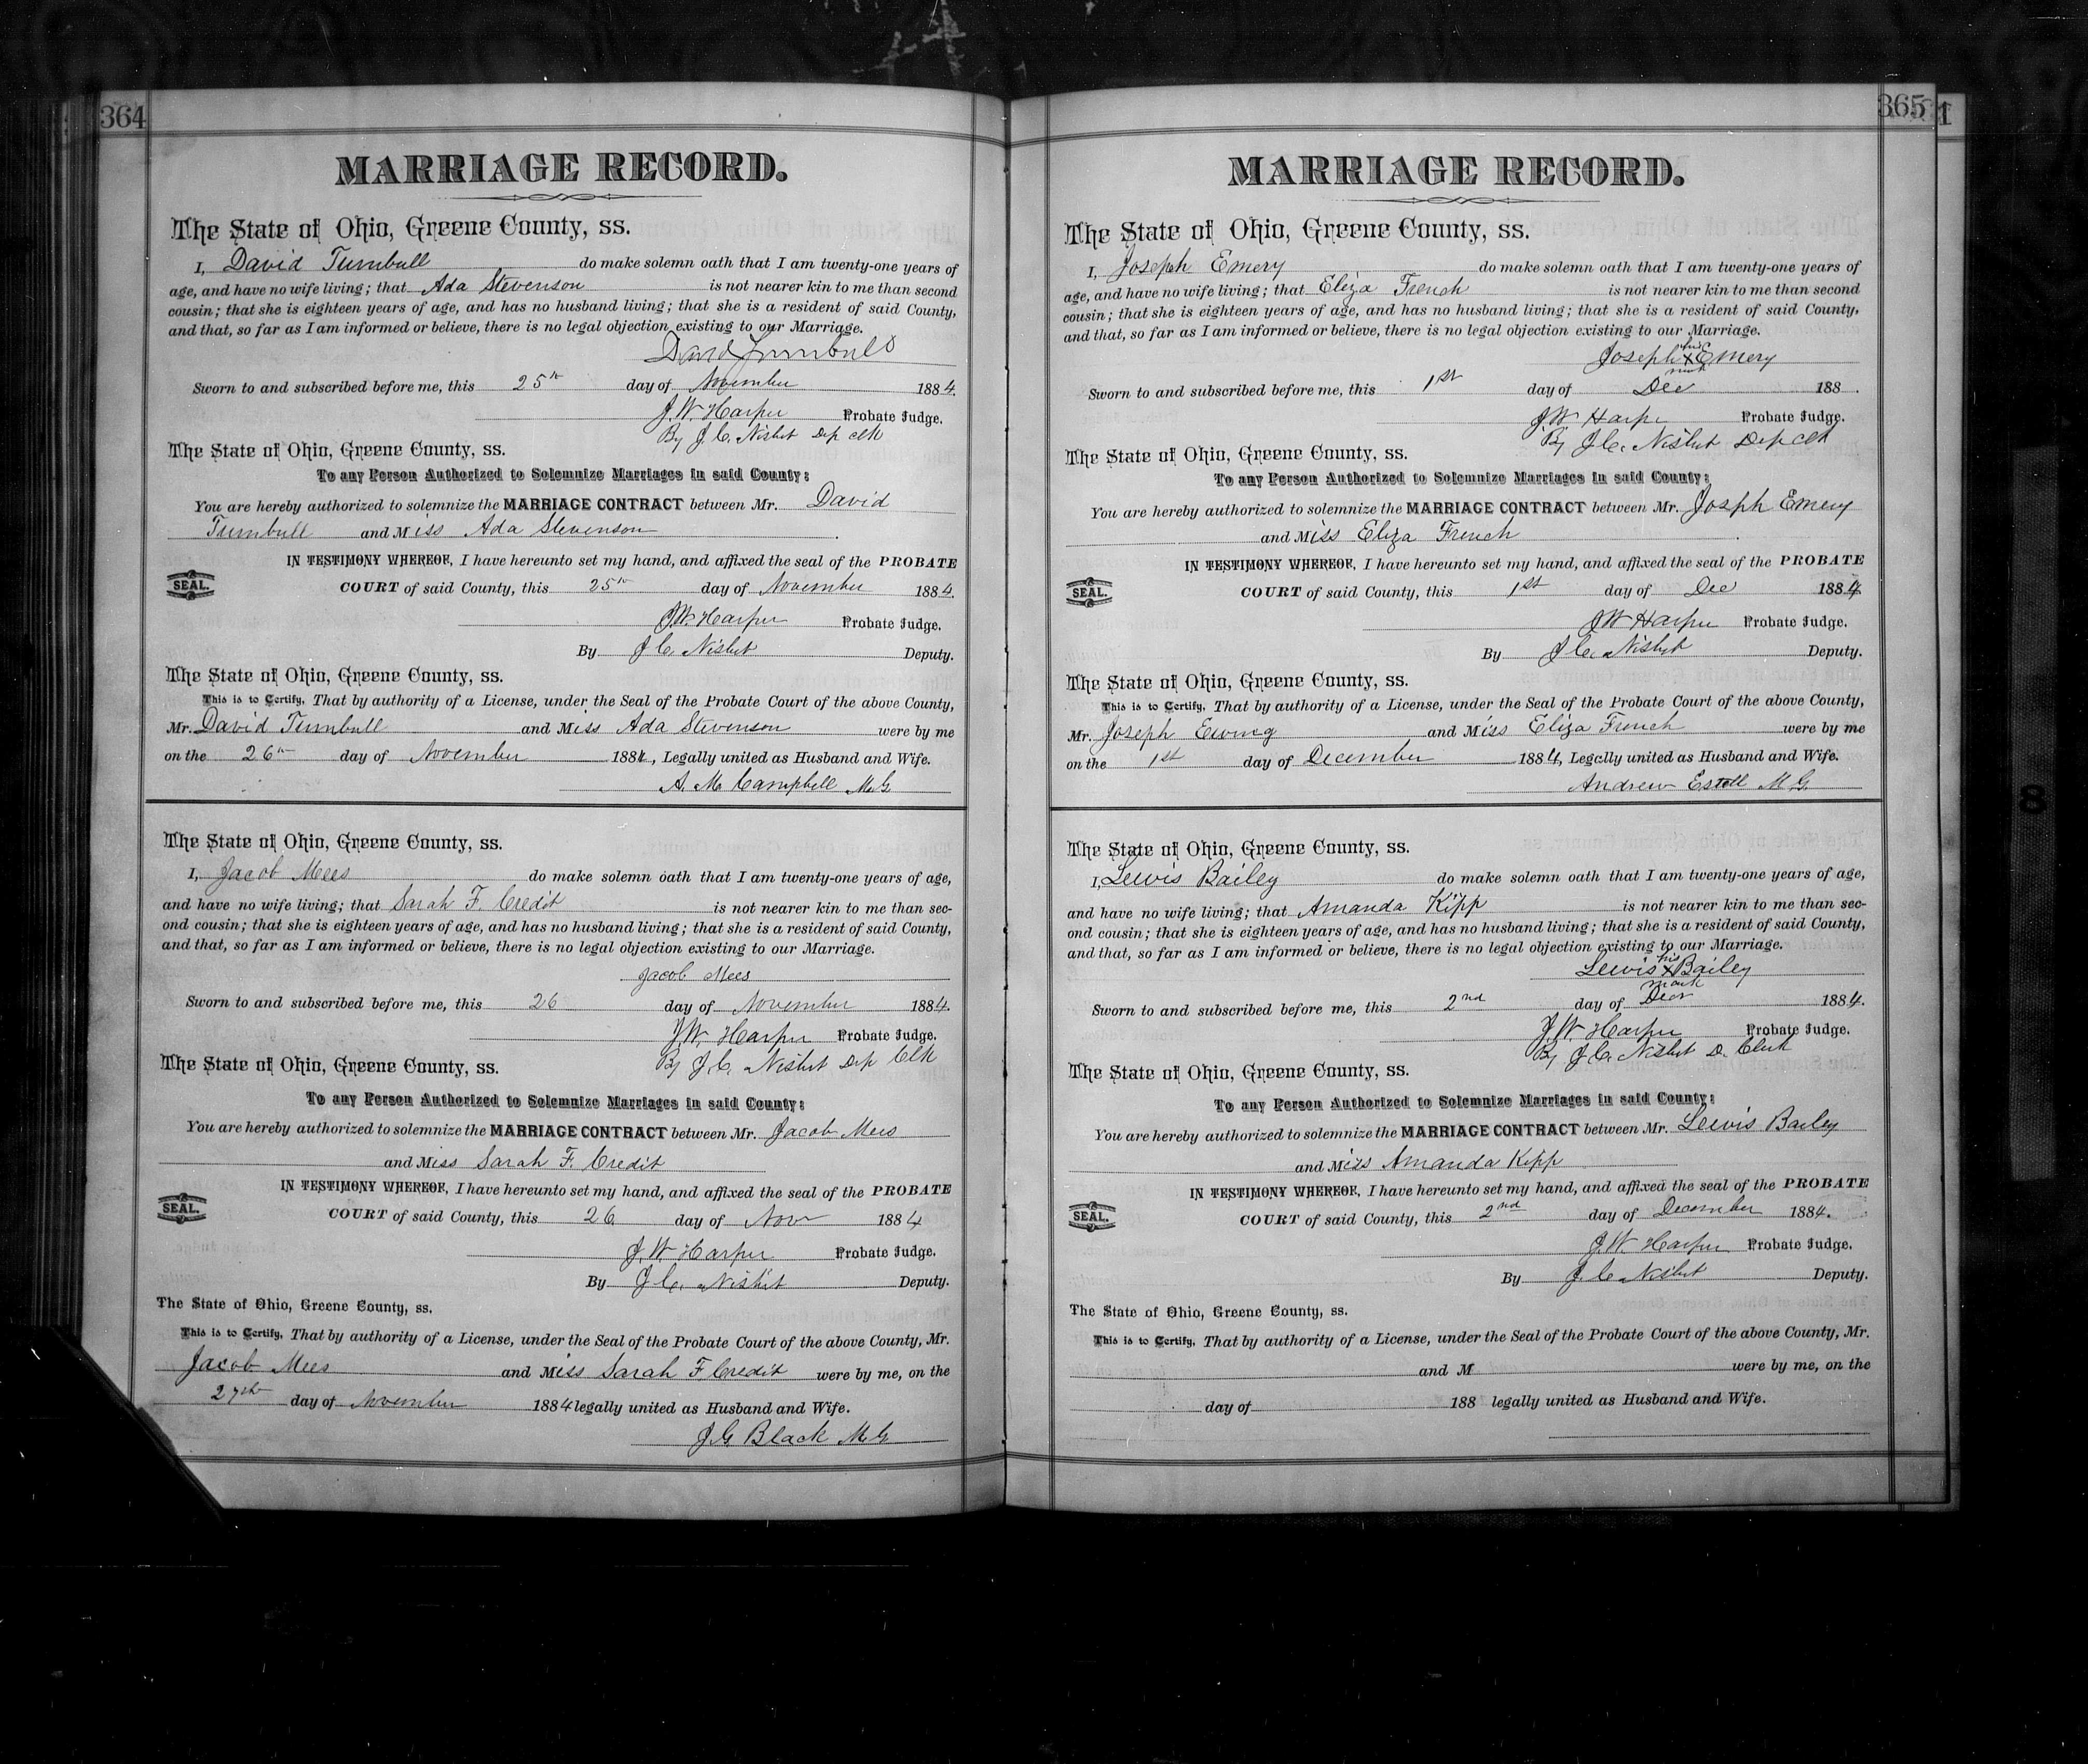 364
MARRIAGE RECORD.
The State of Ohio, Greene County, ss.
I, David Turnbull do make solemn oath that I am twenty-one years of
age, and have no wife living; that Ada Stevenson is not nearer kin to me than second
cousin; that she is eighteen years of age, and has no husband living; that she is a resident of said County,
and that, so far as I am informed or believe, there is no legal objection existing to our Marriage.
David Turnbull
Sworn to and subscribed before me, this 25th day of November 1884.
J.W. Harper Probate Judge.
By J.C. Nisbet Dep clk
The State of Ohio, Greene County, ss.
To any Person Authorized to Solemnize Marriages in said County:
You are hereby authorized to solemnize the MARRIAGE CONTRACT between Mr. David
Turnbull and Miss Ada Stevenson
IN TESTIMONY WHEREOF, I have hereunto set my hand, and affixed the seal of the PROBATE
SEAL. COURT of said County, this 25th day of November 1884.
J.W. Harper Probate Judge.
By J.C. Nisbet Deputy.
The State of Ohio, Greene County, ss.
This is to Certify, That by authority of a License, under the Seal of the Probate Court of the above County,
Mr. David Turnbull and Miss Ada Stevenson were by me
on the 26th day of November 1884, Legally united as Husband and Wife.
A. M. Campbell M.G.
The State of Ohio, Greene County, ss.
I, Jacob Mees do make solemn oath that I am twenty-one years of age,
and have no wife living; that Sarah F. Credit is not nearer kin to me than sec-
ond cousin; that she is eighteen years of age, and has no husband living; that she is a resident of said County,
and that, so far as I am informed or believe, there is no legal objection existing to our Marriage.
Jacob Mees
Sworn to and subscribed before me, this 26 day of November 1884.
J.W. Harper Probate Judge.
By J.C. Nisbet Dep Clk
The State of Ohio, Greene County, ss.
To any Person Authorized to Solemnize Marriages in said County:
You are hereby authorized to solemnize the MARRIAGE CONTRACT between Mr. Jacob Mees
and Miss Sarah F. Credit
IN TESTIMONY WHEREOF, I have hereunto set my hand, and affixed the seal of the PROBATE
SEAL. COURT of said County, this 26 day of Nov 1884
J.W. Harper Probate Judge.
By J.C. Nisbet Deputy.
The State of Ohio, Greene County, ss.
This is to Certify, That by authority of a License, under the Seal of the Probate Court of the above County, Mr.
Jacob Mees and Miss Sarah F Credit were by me, on the
27th day of November 1884 legally united as Husband and Wife.
J.G. Black M.G.
365
1
MARRIAGE RECORD.
The State of Ohio, Greene County, ss.
I, Joseph Emery do make solemn oath that I am twenty-one years of
age, and have no wife living; that Eliza French is not nearer kin to me than second
cousin; that she is eighteen years of age, and has no husband living; that she is a resident of said County,
and that, so far as I am informed or believe, there is no legal objection existing to our Marriage.
his
Joseph X Emery
mark
Sworn to and subscribed before me, this 1st day of Dec 188 .
J W Harper Probate Judge.
By J.C. Nisbet Dep clk
The State of Ohio, Greene County, ss.
To any Person Authorized to Solemnize Marriages in said County:
You are hereby authorized to solemnize the MARRIAGE CONTRACT between Mr. Joseph Emery
and Miss Eliza French
IN TESTIMONY WHEREOF, I have hereunto set my hand, and affixed the seal of the PROBATE
SEAL. COURT of said County, this 1st day of Dec 1884
J W Harper Probate Judge.
By J.C. Nisbet Deputy.
The State of Ohio, Greene County, ss.
This is to Certify, That by authority of a License, under the Seal of the Probate Court of the above County,
Mr. Joseph Ewing and Miss Eliza French were by me
on the 1st day of December 1884, Legally united as Husband and Wife.
Andrew Estell M.G.
The State of Ohio, Greene County, ss.
I, Lewis Bailey do make solemn oath that I am twenty-one years of age,
and have no wife living; that Amanda Kipp is not nearer kin to me than sec-
ond cousin; that she is eighteen years of age, and has no husband living; that she is a resident of said County,
and that, so far as I am informed or believe, there is no legal objection existing to our Marriage.
his
Lewis X Bailey
mark
Sworn to and subscribed before me, this 2nd day of Decr 1884.
J.W. Harper Probate Judge.
By J.C. Nisbet D. Clerk
The State of Ohio, Greene County, ss.
To any Person Authorized to Solemnize Marriages in said County:
You are hereby authorized to solemnize the MARRIAGE CONTRACT between Mr. Lewis Bailey
and Miss Amanda Kipp
IN TESTIMONY WHEREOF, I have hereunto set my hand, and affixed the seal of the PROBATE
SEAL. COURT of said County, this 2nd day of December 1884.
J.W. Harper Probate Judge.
By J.C. Nisbet Deputy.
The State of Ohio, Greene County, ss.
This is to Certify, That by authority of a License, under the Seal of the Probate Court of the above County, Mr.
and M were by me, on the
day of 188 legally united as Husband and Wife.
8